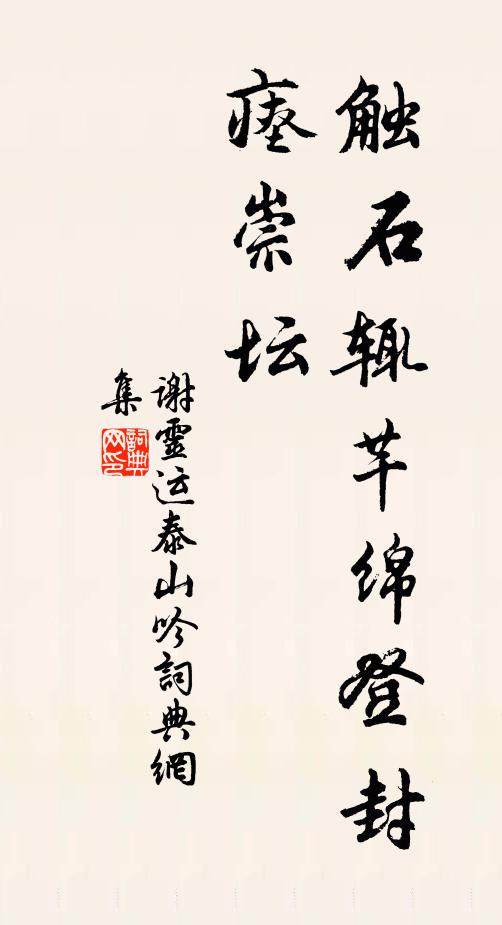 触石辄芊绵登封
瘗崇坛
谢靈运泰山吟詞典網
集
詞典
网印